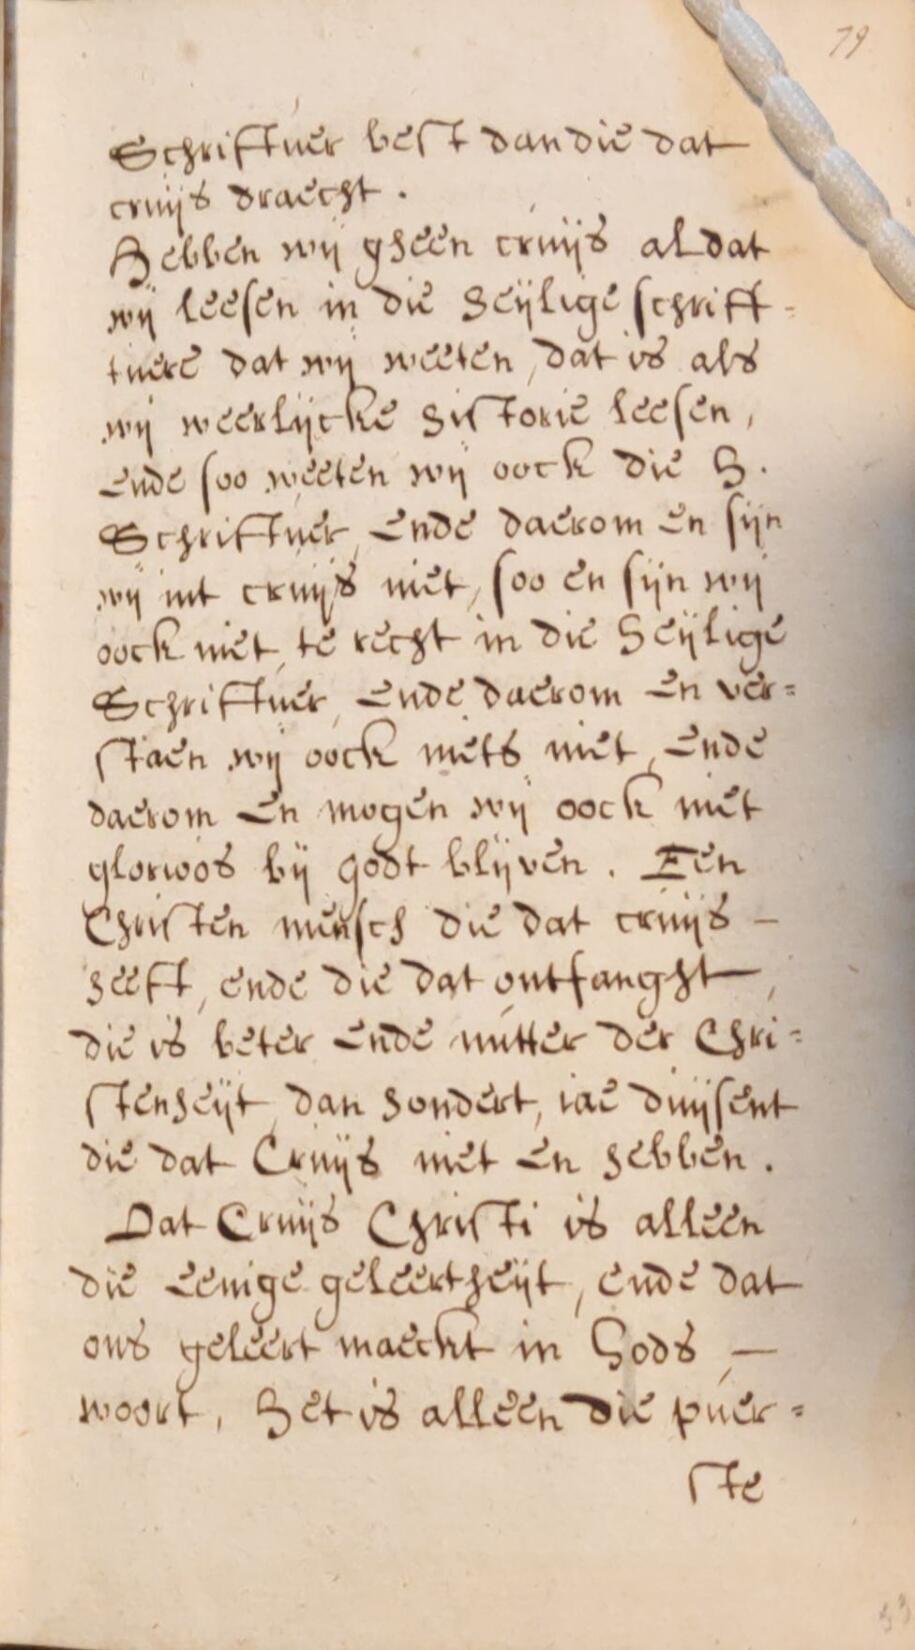 79
Schriftuer best dan die dat
cruijs draecht.
Hebben wij gheen cruijs al dat
wij leesen in die heijlige schrift-
tuere dat wij weeten, dat is als
wij weerlijcke historie leesen,
ende soo weeten wij oock die H.
Schriftuer, ende daerom en sijn
wij int cruijs niet, soo en sijn wij
oock niet te recht in die heijlige
Schriftuer, ende daerom en ver=
staen wij oock niets niet, ende
daerom en mogen wij oock niet
glorioos bij godt blijven. Een
Christen mensch die dat cruijs –
heeft, ende die dat ontfanght,
die is beter ende nutter der Chri=
stenheijt, dan hondert, iae duijsent
die dat Cruijs niet en hebben.
Dat Cruijs Christi is alleen
die eenige geleertheijt, ende dat
ons geleert maeckt in Gods –
woort, Het is alleen die puer=
ste